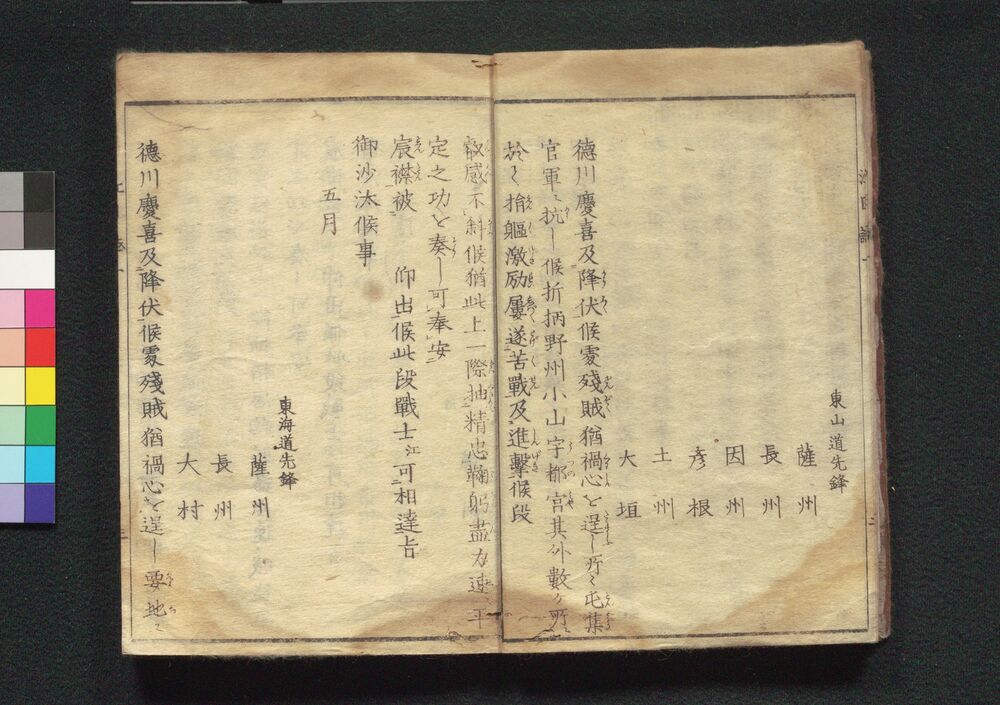 東山道先鋒
薩州
長州
因州
彦根
土州
大垣
徳川慶喜及降伏候処残賊猶禍心を逞し所々屯集
官軍ニ抗し候折柄野州小山宇都宮其外数ヶ所ニ
於て捐軀激励屢遂苦戰及進撃候段
叡感不斜候猶此上一際抽精忠鞠躬盡力速ニ平
定之功を奏し可奉安
宸襟被 仰出候此段戰士江可相達旨
御沙汰候事
五月
東海道先鋒
薩州
長州
大村
德川慶喜及降伏候処殘賊猶禍心を逞し要地ニ